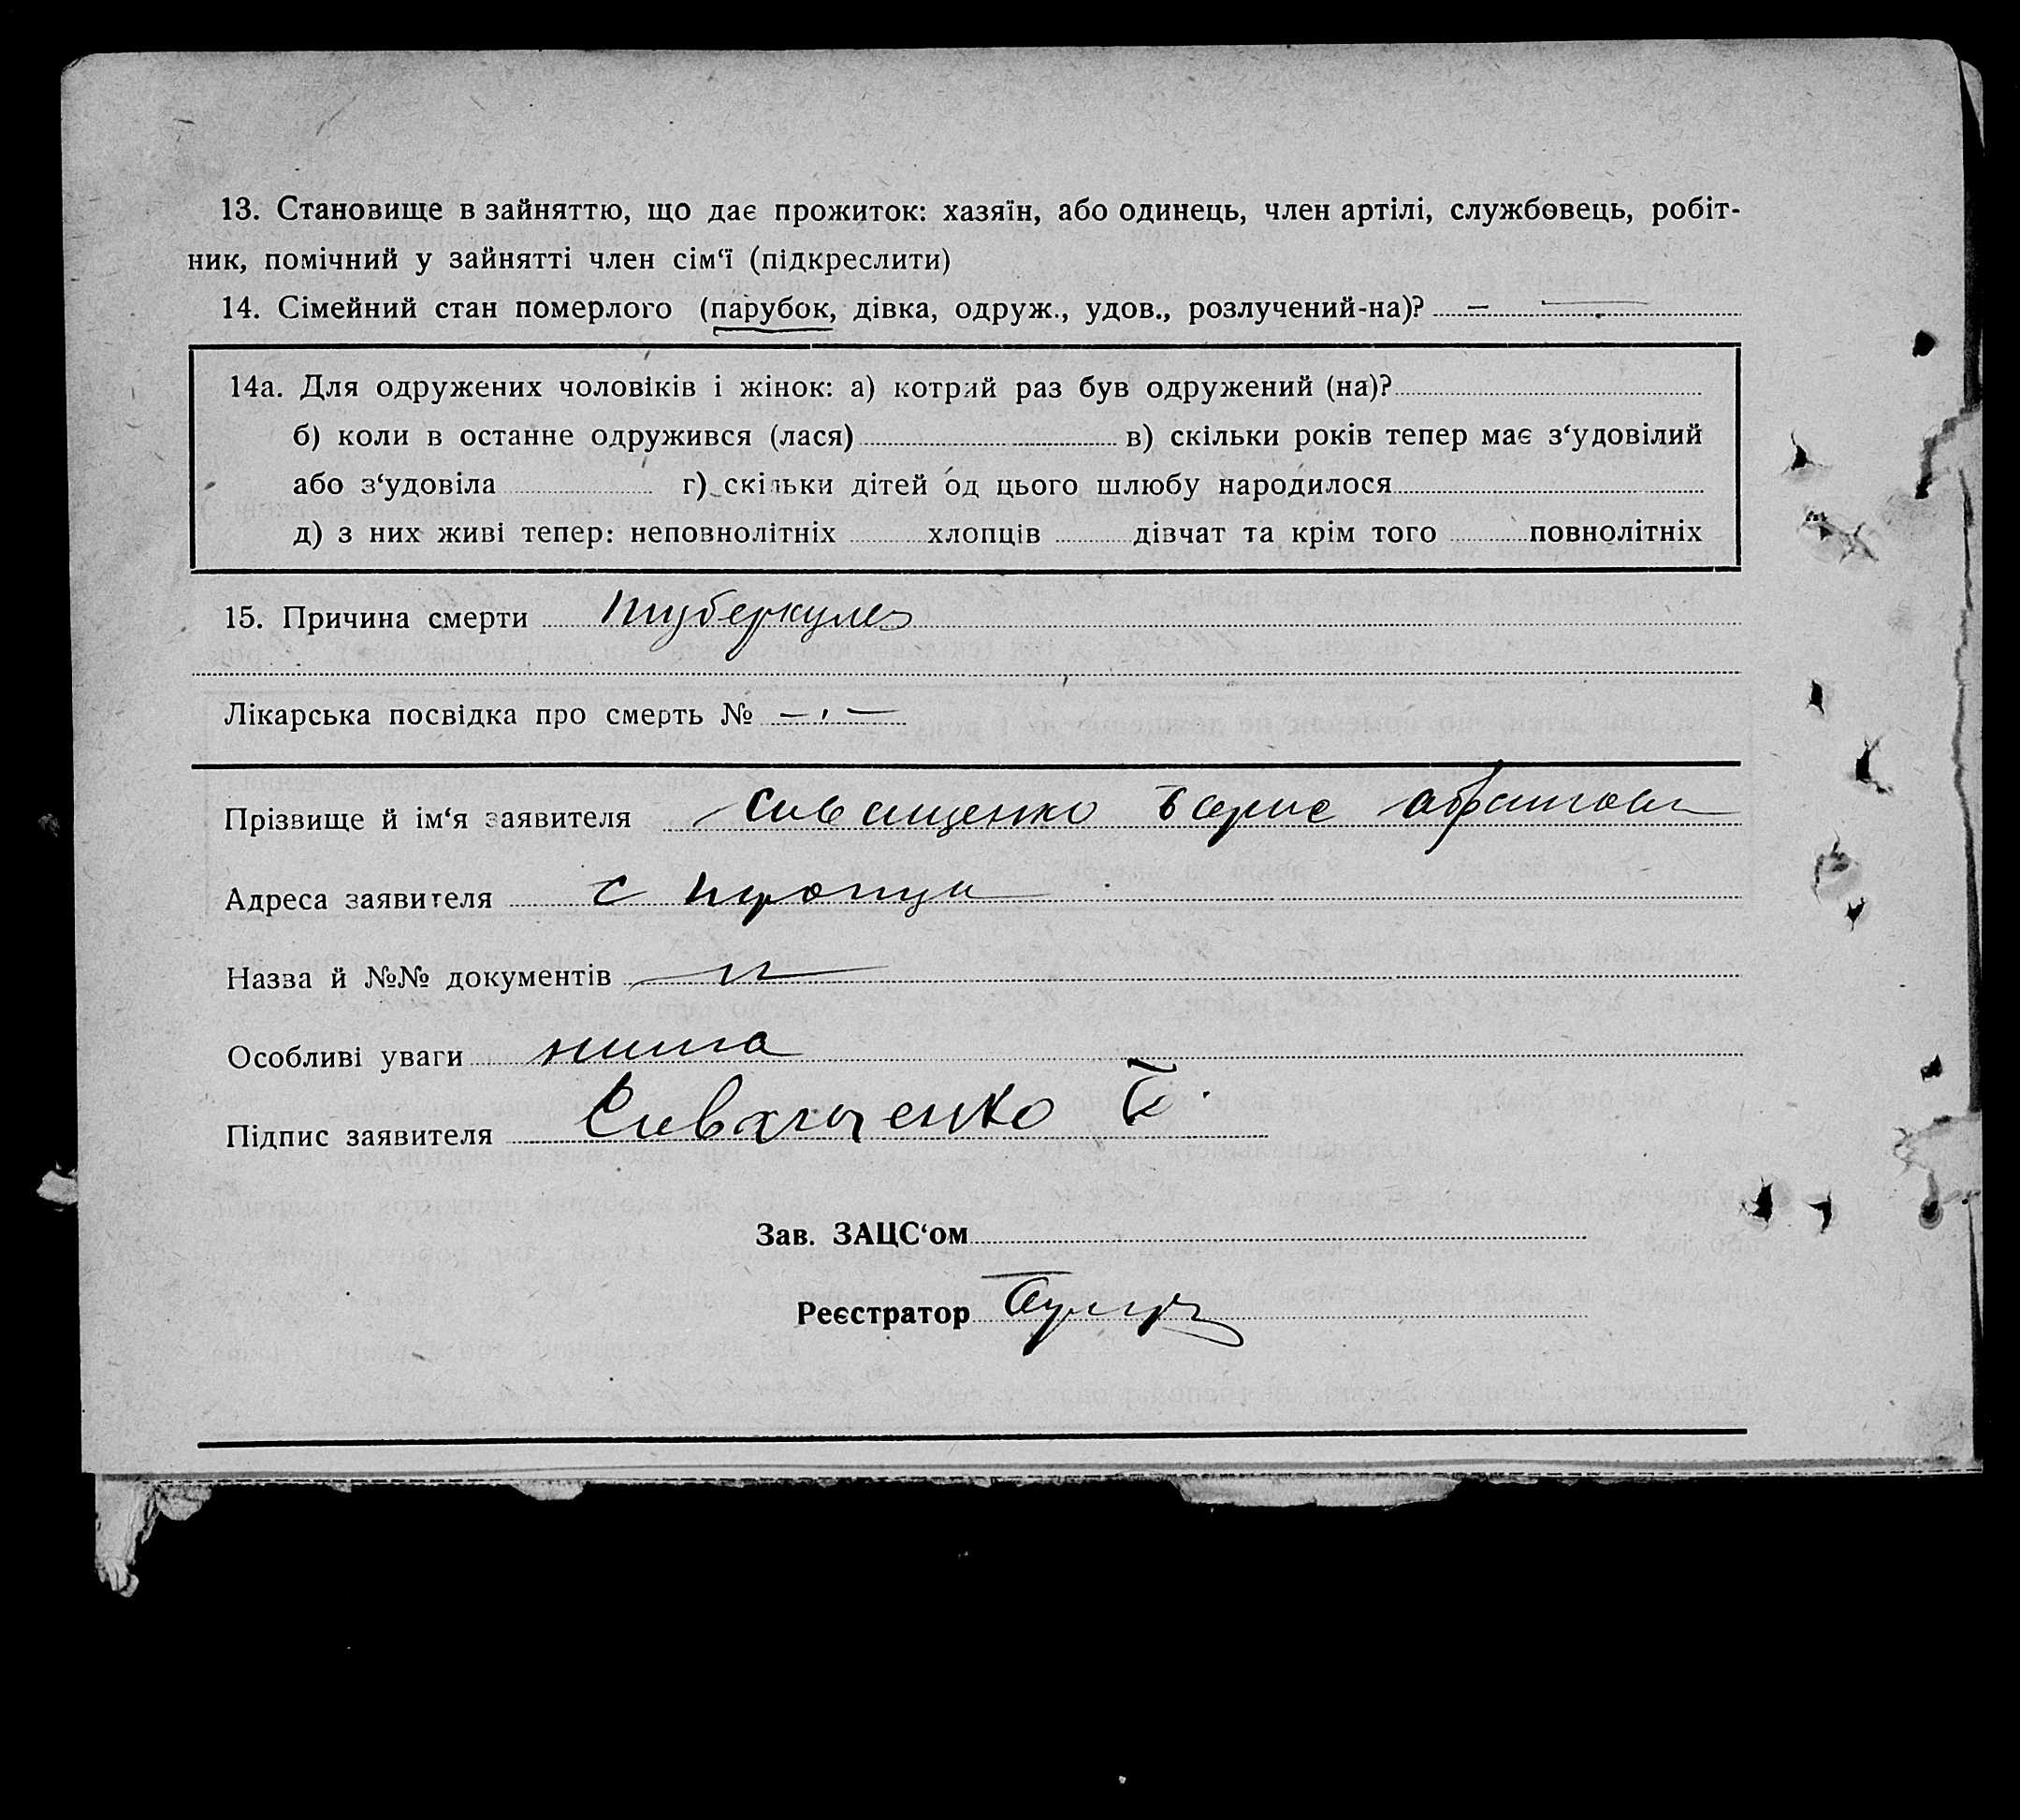 13. Становище в зайняттю, що дає прожиток: хазяїн, або одинець, член артілі, службовець, робіт-
ник, помічний у зайнятті член сім‘ї (підкреслити)
14. Сімейний стан померлого (парубок, дівка, одруж., удов., розлучений-на)? —
14а. Для одружених чоловіків і жінок: а) котрий раз був одружений (на)?
б) коли в останнє одружився (лася) в) скільки років тепер має з‘удовілий
або з‘удовіла г) скільки дітей од цього шлюбу народилося
д) з них живі тепер: неповнолітніх хлопців дівчат та крім того повнолітніх
15. Причина смерти туберкулез
Лікарська посвідка про смерть № —„—
Прізвище й ім‘я заявителя Борис
Адреса заявителя с
Назва й №№ документів
Особливі уваги нима
Підпис заявителя Б.
Зав. ЗАЦС‘ом
Реєстратор